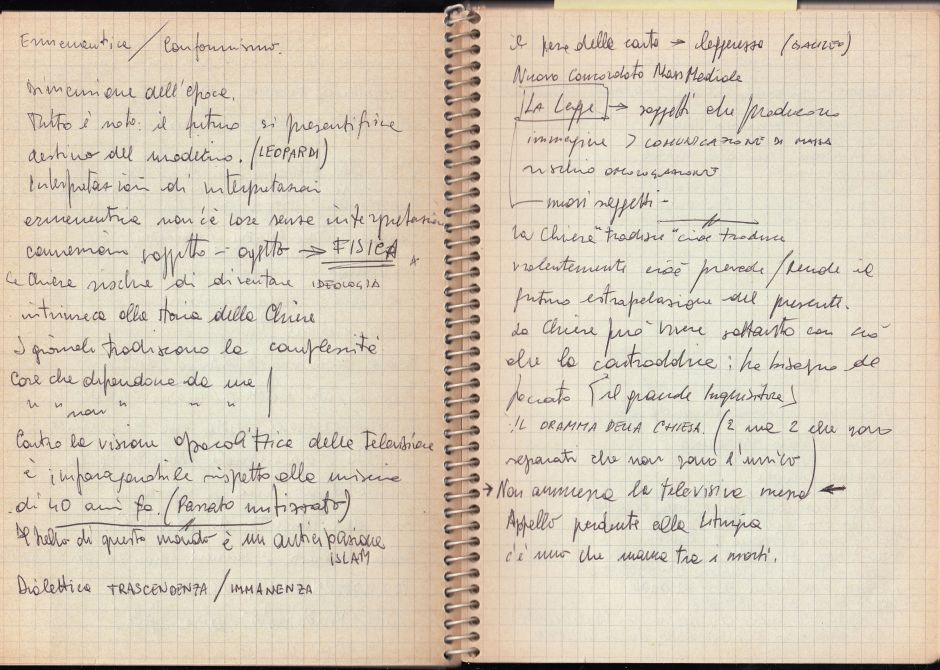 Ermeneutica / Conformismo.
dell'epoca.
Tutto è noto: il futuro si presentifica
destino del moderno. (LEOPARDI)
Interpretazioni di interpretazioni
ermeneutica non c'è cosa senza interpretazione
connessione soggetto - oggetto → FISICA
La Chiesa rischia di diventare IDEOLOGIA
intrinseca alla storia della Chiesa
I giornali tradiscono la complessità
Cose che dipendono da me
" " non " " "
Contro la visione apocalittica della Televisione
è imparagonabile rispetto alla miseria
di 40 anni fa. (Passato mitizzato)
Il bello di questo mondo è un'anticipazione
ISLAM
Dialettica TRASCENDENZA / IMMANENZA
il peso della carta → leggerezza
Nuovo Concordato Mass Mediale
LA Legge → soggetti che producono
immagine > COMUNICAZIONE DI MASSA
rischio OMOLOGAZIONE
nuovi soggetti -
La Chiesa "tradisce" cioè traduce
violentemente cioè prevede / rende il
futuro estrapolazione del presente.
La Chiesa può vivere soltanto con ciò
che la contraddice: ha bisogno del
peccato [il grande Inquisitore]
IL DRAMMA DELLA CHIESA. (2 ma 2 che sono
separati che non sono l'unico)
→ Non ammessa la televisiva messa ←
Appello perdente alla liturgia
c'è uno che manca tra i morti.